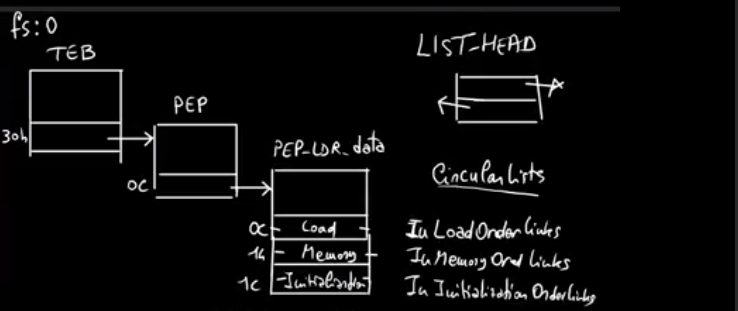 fs:0
TEB
30h
PEP
0C
PEP_LDR_data
0C Load
14 Memory
1C Initialization
LIST-HEAD
Circular lists
In Load Order links
In Memory Ord links
In Initialization Order links